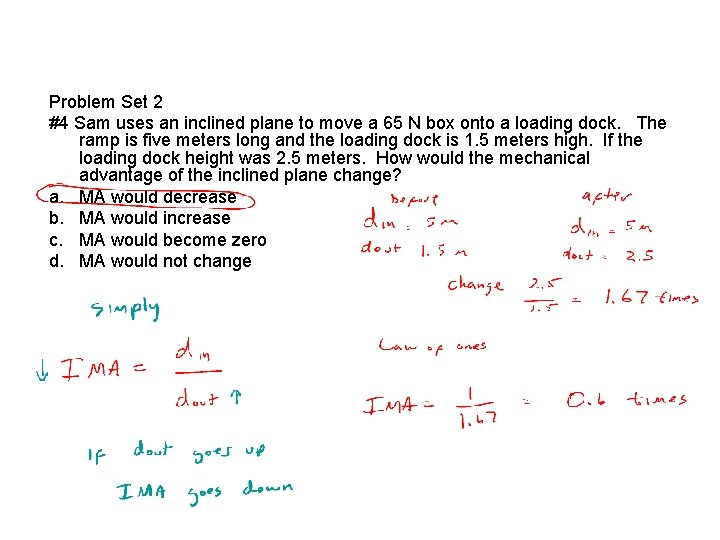 Problem Set 2
#4 Sam uses an inclined plane to move a 65 N box onto a loading dock. The
ramp is five meters long and the loading dock is 1.5 meters high. If the
loading dock height was 2.5 meters. How would the mechanical
advantage of the inclined plane change?
a. MA would decrease
b. MA would increase
c. MA would become zero
d. MA would not change
Before
din = 5m
dout 1.5 m
after
din = 5m
dout = 2.5
change 2.5/1.5 = 1.67 times
simply
↓ IMA = din/dout ↑
Law of ones
IMA = 1/1.67 = 0.6 times
IF dout goes up
IMA goes down